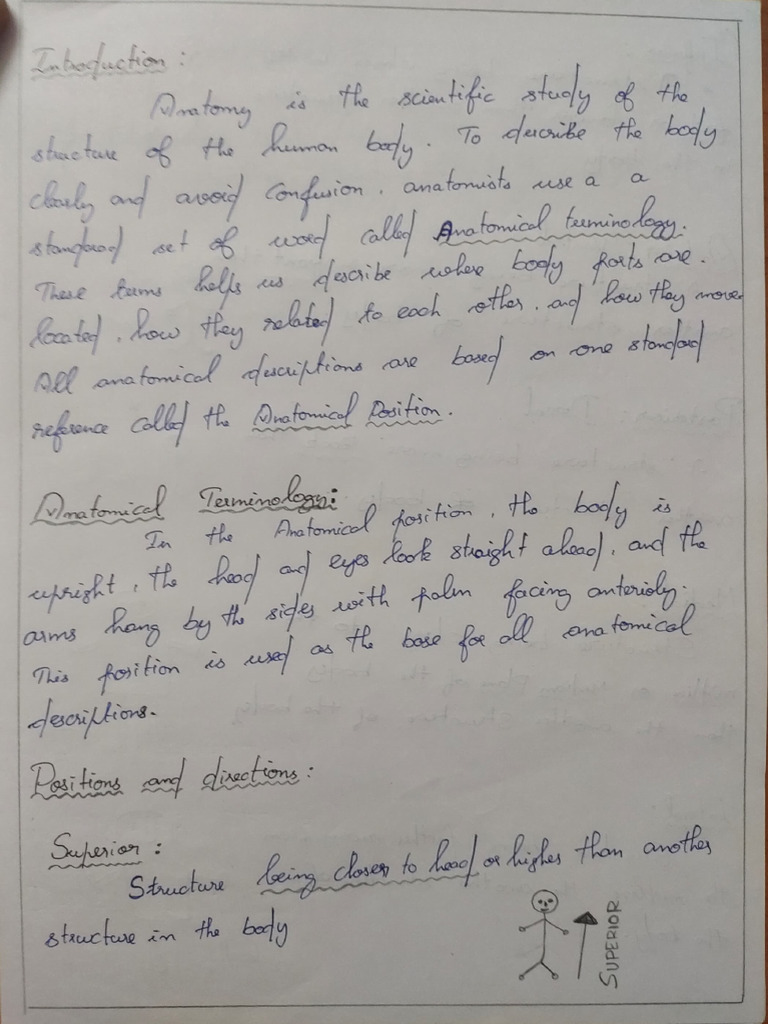 Introduction :
Anatomy is the scientific study of the
structure of the human body. To describe the body
clearly and avoid confusion, anatomists use a a
standard set of word called Anatomical terminology.
These terms helps us describe where body parts are.
located, how they related to each other, and how they move.
All anatomical descriptions are based on one standard
reference called the Anatomical Position.
Anatomical Terminology:
In the Anatomical position, the body is
upright, the head and eyes look straight ahead, and the
arms hang by the sides with palm facing anterioly.
This position is used as the base for all anatomical
descriptions.
Positions and directions:
Superior :
Structure being closer to head or higher than another
structure in the body
SUPERIOR